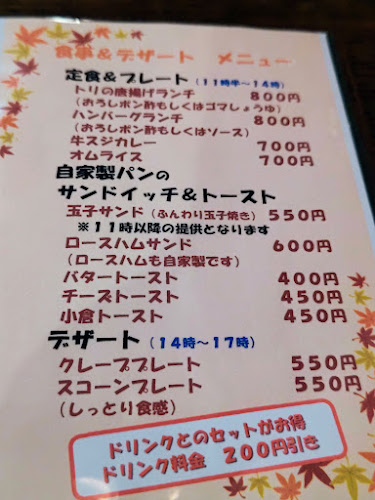 食事＆デザート　メニュー
定食＆プレート（11時半～14時）
トリの唐揚げランチ　800円
（おろしポン酢もしくはゴマしょうゆ）
ハンバーグランチ　800円
（おろしポン酢もしくはソース）
牛スジカレー　700円
オムライス　700円
自家製パンの
サンドイッチ＆トースト
玉子サンド（ふんわり玉子焼き）550円
※11時以降の提供となります
ロースハムサンド　600円
（ロースハムも自家製です）
バタートースト　400円
チーズトースト　450円
小倉トースト　450円
デザート（14時～17時）
クレーププレート　550円
スコーンプレート　550円
（しっとり食感）
ドリンクとのセットがお得
ドリンク料金　200円引き